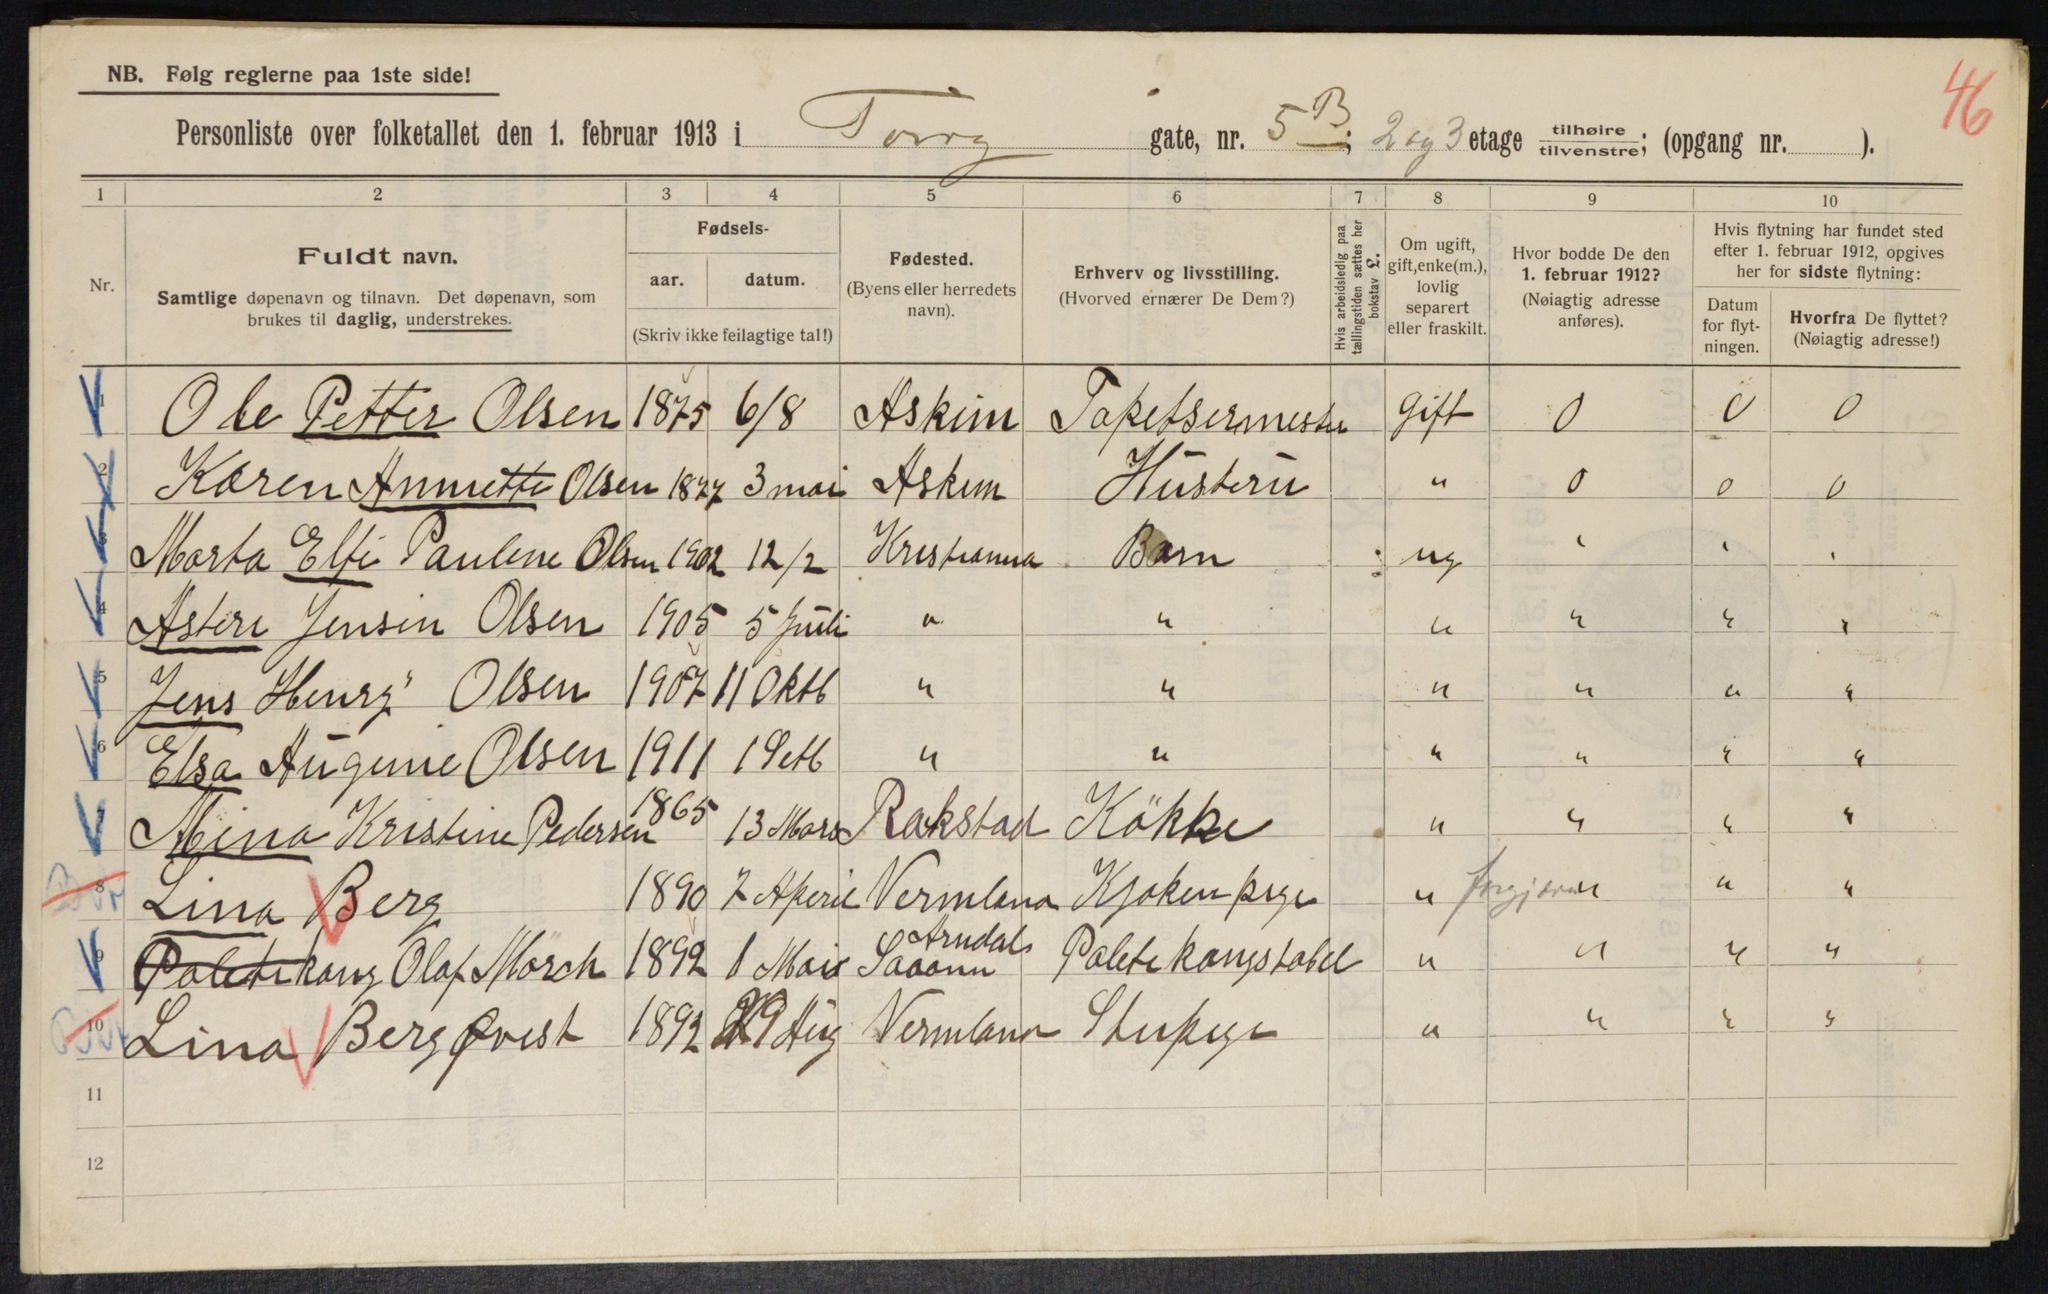 46
NB. Følg reglerne paa 1ste side!
Personliste over folketallet den 1. februar 1913 i Torvg gate, nr. 5 B; 2 og 3 etage tilhøire/tilvenstre; (opgang nr. ).
1 2 3 4 5 6 7 8 9 10
Nr.
Fuldt navn.
Samtlige døpenavn og tilnavn. Det døpenavn, som
brukes til daglig, understrekes.
Fødsels-
aar. datum.
(Skriv ikke feilagtige tal!)
Fødested.
(Byens eller herredets
navn).
Erhverv og livsstilling.
(Hvorved ernærer De Dem?)
Hvis arbeidsledig paa
tællingstiden sættes her
bokstav L.
Om ugift,
gift, enke(m.),
lovlig
separert
eller fraskilt.
Hvor bodde De den
1. februar 1912?
(Nøiagtig adresse
anføres).
Hvis flytning har fundet sted
efter 1. februar 1912, opgives
her for sidste flytning:
Datum
for flyt-
ningen.
Hvorfra De flyttet?
(Nøiagtig adresse!)
1 Ole Petter Olsen 1875 6/8 Askim Tapetsermester gift 0 0 0
2 Karen Annette Olsen 1877 3 mai Askim Hüsterü " 0 0 0
3 Marta Elfi Paulene Olsen 1902 12/2 Kristiania Barn ug " " "
4 Asteri Jensin Olsen 1905 5 Juli " " " " " "
5 Jens Henry Olsen 1907 11 Oktb " " " " " "
6 Elsa Aügenie Olsen 1911 1 Setb " " " " " "
Mina Kristine Pedersen 1865 13 Mars Rakstad Kökke " " " "
8 Lina Berg 1890 7 Aperil Vermlana Kjoken pige " " " "
9 Paletekong Olaf Mörch 1892 1 Mai Arndal Paletekongstabel " " " "
10 Lina BergQvist 1892 29 Aug Vermlana Stupige " " " "
11
12